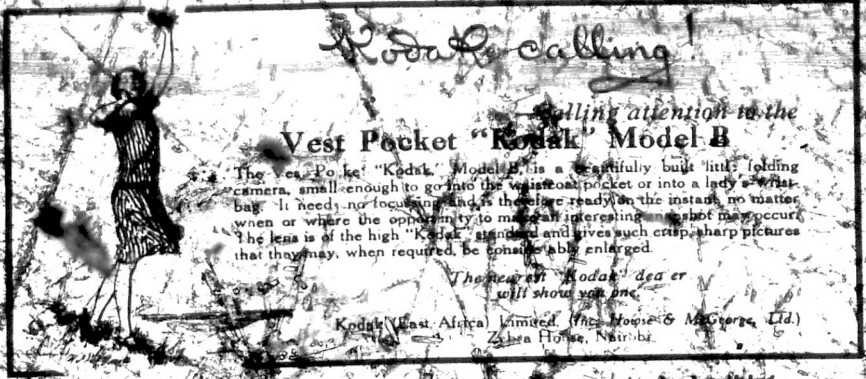 Kodak calling!
—Calling attention to the
Vest Pocket "Kodak" Model B
The Vest Pocket "Kodak," Model B, is a beautifully built little folding
camera, small enough to go into the waistcoat pocket or into a lady's wrist-
bag. It needs no focussing and is therefore ready on the instant, no matter
when or where the opportunity to make an interesting snapshot may occur.
The lens is of the high "Kodak" standard and gives such crisp, sharp pictures
that they may, when required, be considerably enlarged.
The nearest "Kodak" dealer
will show you one
Kodak (East Africa) Limited. (Inc. Howse & McGeorge, Ltd.)
Zebra House, Nairobi.